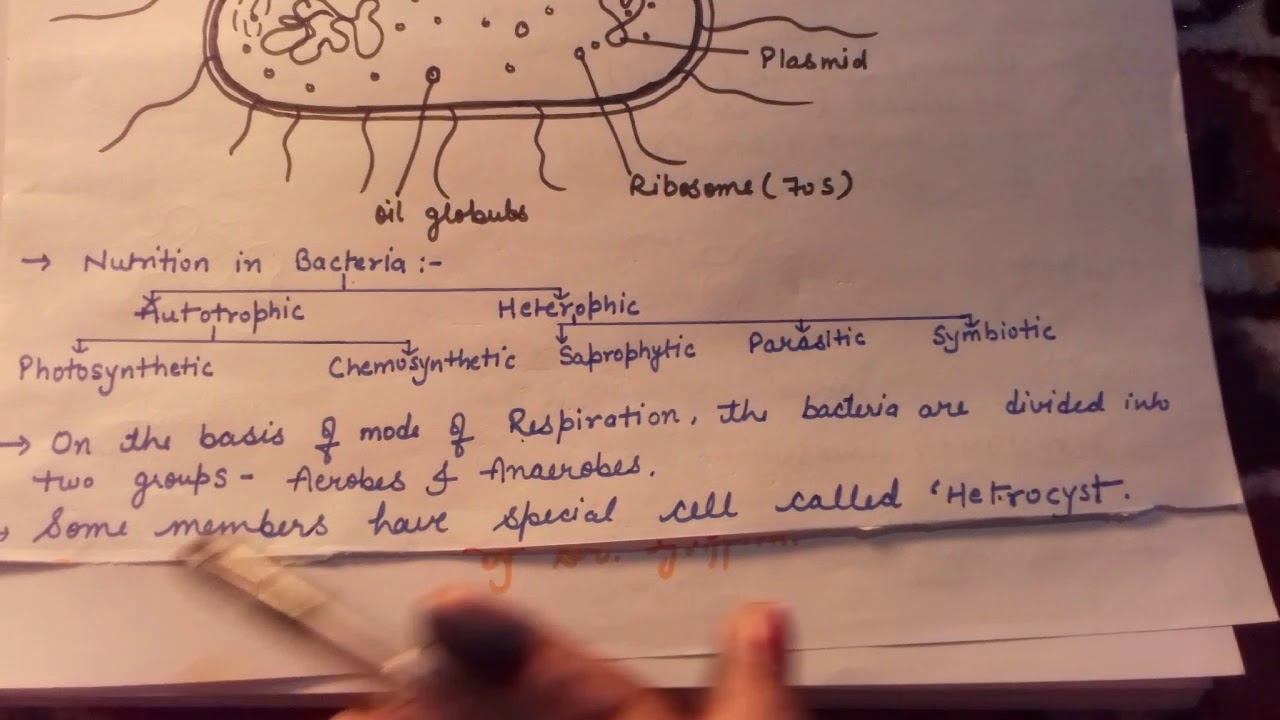 Plasmid
Ribosome (70s)
oil globubs
→ Nutrition in Bacteria :-
Autotrophic Heterophic
Photosynthetic Chemosynthetic Saprophytic Parasitic Symbiotic
→ On the basis of mode of Respiration, the bacteria are divided into
two groups - Aerobes & Anaerobes.
→ Some members have special cell called 'Hetrocyst.